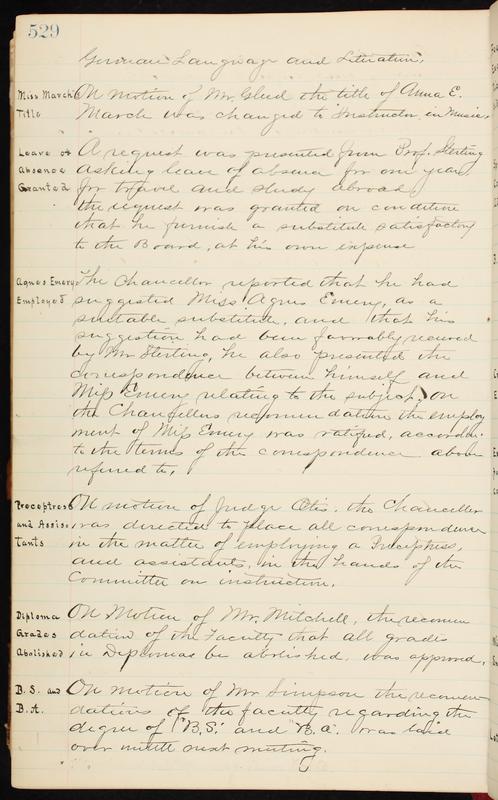 529
German Language and Literature.
Miss March On motion of Mr. Gleed the title of Anna E.
Title March was changed to Instructor in Music.
Leave of A request was presented from Prof. Sterling
Absence asking leave of absence for one year
Granted for travel and study abroad
the request was granted on condition
that he furnish a substitute satisfactory
to the Board, at his own expense
Agnes Emery The Chancellor reported that he had
Employed suggested Miss Agnes Emery, as a
suitable substitute, and that his
suggestion had been favorably received
by Mr Sterling, he also presented the
correspondence between himself and
Miss Emery relating to the subject, on
the Chancellors recommendation the employ
ment of Miss Emery was ratified, accordin.
to the terms of the correspondence above
referred to.
Preceptress On motion of Judge Otis, the Chancellor
and Assis was directed to place all correspondence
tants in the matter of employing a Preceptress,
and assistants, in the hands of the
Committee on instruction.
Diploma On Motion of Mr. Mitchell, the recomen
Grades dation of the Faculty that all grades
Abolished in Diplomas be abolished, was approved.
B.S. and On motion of Mr Simpson the recomen
B.A. dations of the faculty regarding the
degree of "B.S." and "B.A." was laid
over untill next meeting.